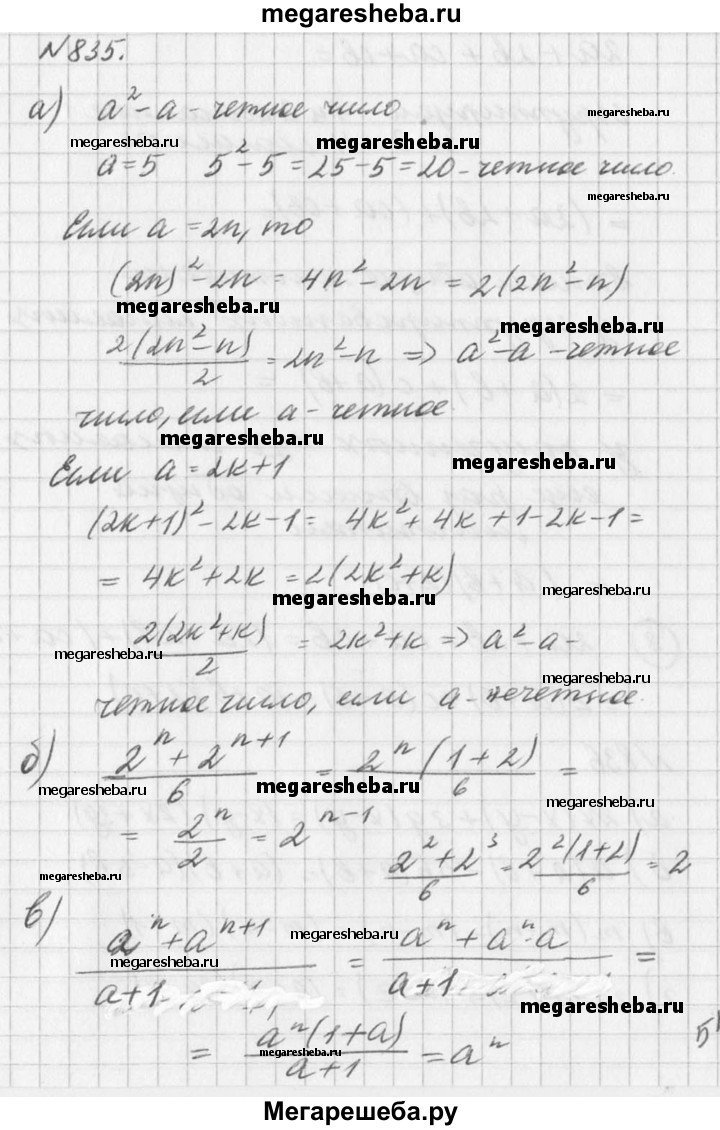 megaresheba.ru
N 835.
а) a² - a - четное число.
megaresheba.ru
megaresheba.ru
megaresheba.ru
a = 5 5² - 5 = 25 - 5 = 20 - четное число.
megaresheba.ru
Если a = 2n, то
(2n)² - 2n = 4n² - 2n = 2(2n² - n)
megaresheba.ru
megaresheba.ru
2(2n² - n)/2 = 2n² - n => a² - a - четное
число, если a - четное.
megaresheba.ru
megaresheba.ru
Если a = 2k+1
(2k+1)² - 2k - 1 = 4k² + 4k + 1 - 2k - 1 =
= 4k² + 2k = 2(2k² + k)
megaresheba.ru
megaresheba.ru
2(2k² + k)/2 = 2k² + k => a² - a -
megaresheba.ru
megaresheba.ru
четное число, если a - нечетное.
б) (2ⁿ + 2ⁿ⁺¹)/6 = 2ⁿ(1+2)/6 =
megaresheba.ru
megaresheba.ru
megaresheba.ru
= 2ⁿ/2 = 2ⁿ⁻¹
(2² + 2³)/6 = 2²(1+2)/6 = 2
megaresheba.ru
в) (aⁿ + aⁿ⁺¹)/(a+1) = (aⁿ + aⁿ·a)/(a+1) =
megaresheba.ru
megaresheba.ru
megaresheba.ru
megaresheba.ru
= aⁿ(1+a)/(a+1) = aⁿ
megaresheba.ru
Мегарешеба.ру